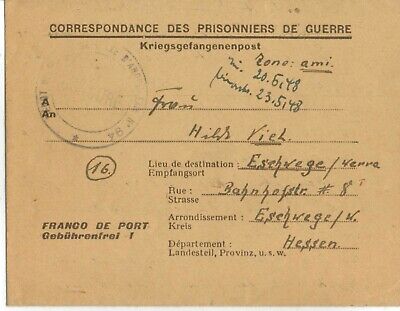 CORRESPONDANCE DES PRISONNIERS DE GUERRE
Kriegsgefangenenpost
Zone: ami.
20.5.48
23.5.48
A
An
Frau
Hilde Vieh
16.
Lieu de destination : Eschwege/Werra
Empfangsort
Rue : Bahnhofstr # 8
Strasse
FRANCO DE PORT
Gebührenfrei !
Arrondissement : Eschwege/W.
Kreis
Département : Hessen.
Landesteil, Provinz, u. s. w.